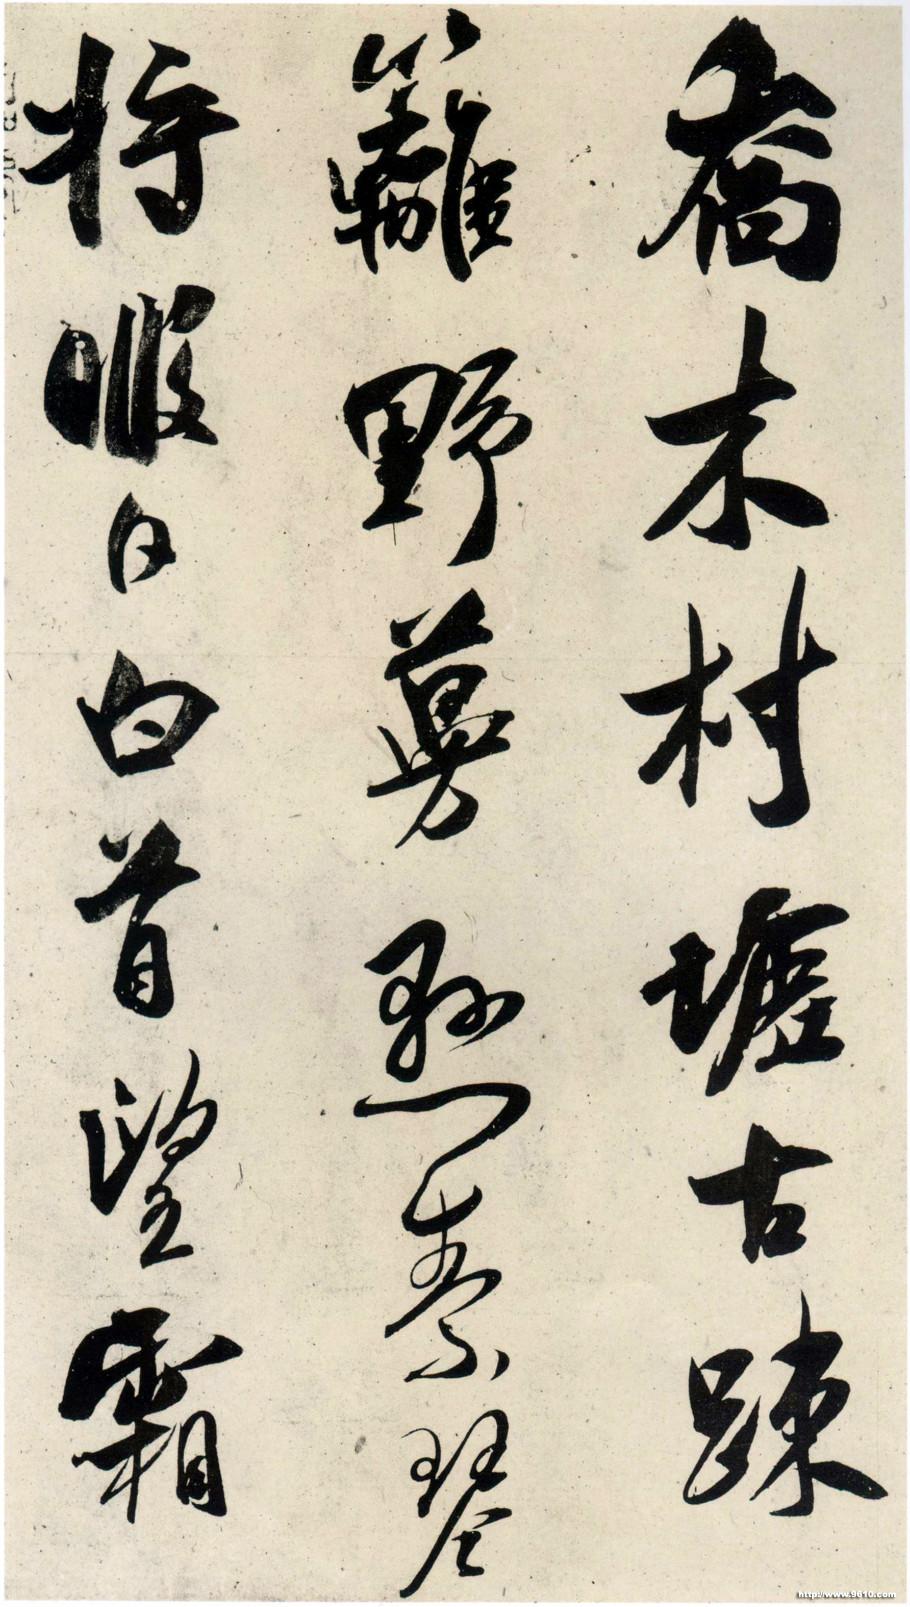 喬木村墟古踈
籬野蔓懸素琴
将暇日白首望霜
http://www.9610.com